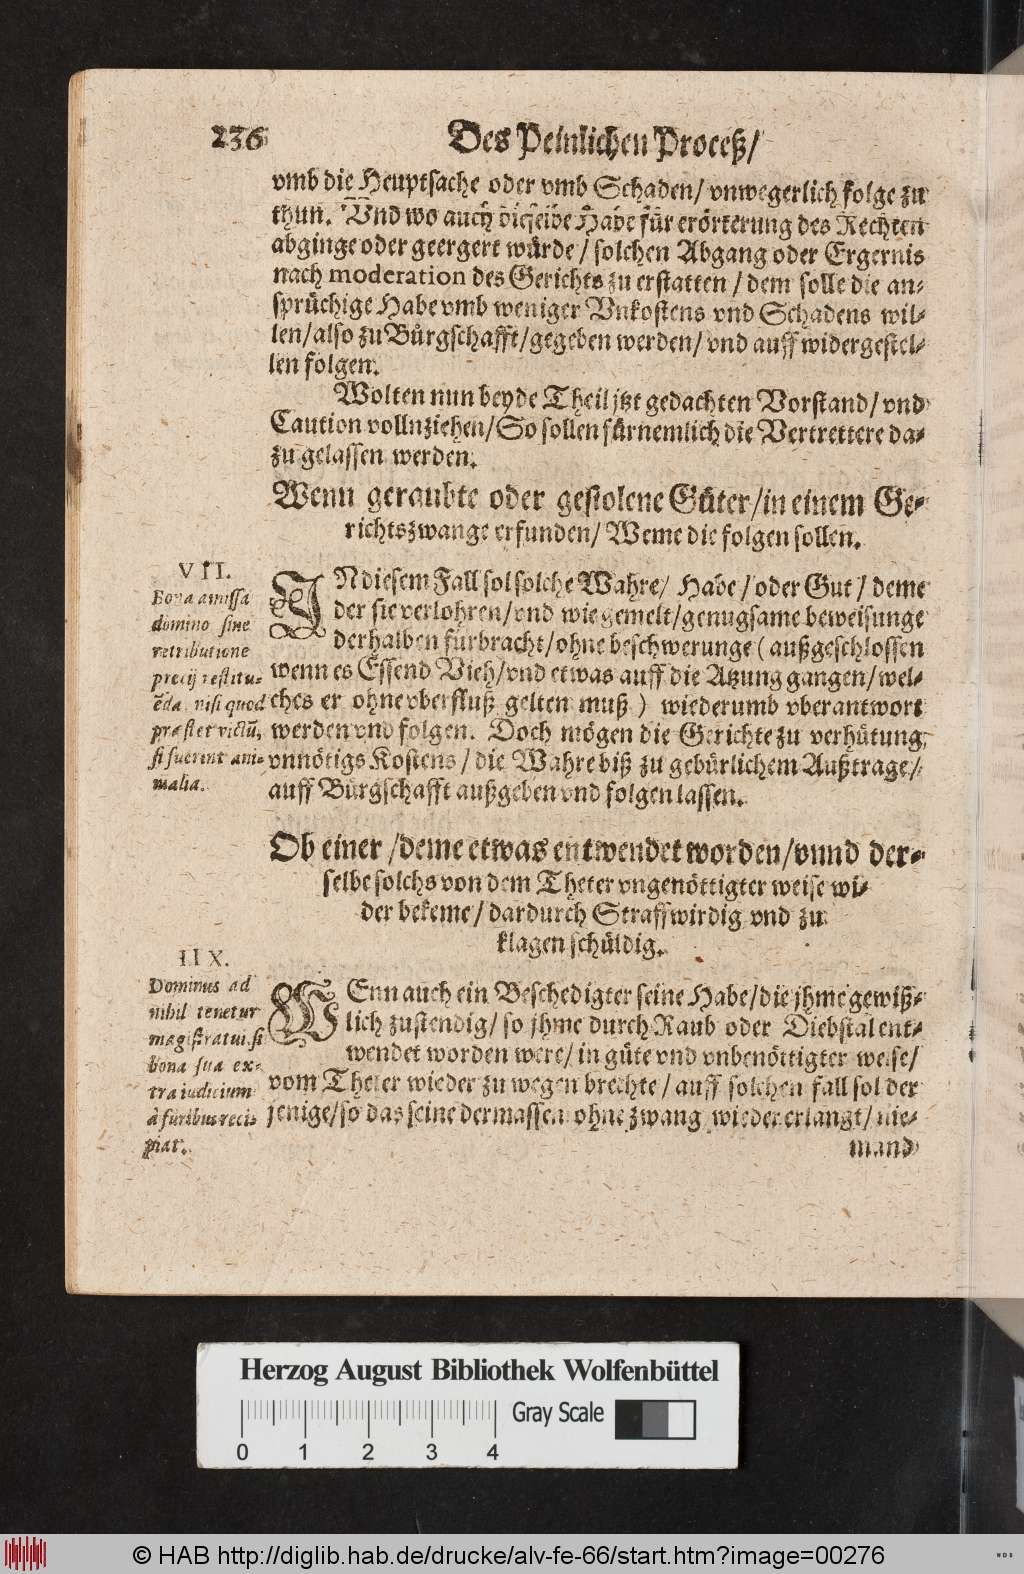 236
Des Peinlichen Proceß/
vmb die Heuptsache oder vmb Schaden/ vnwegerlich folge zu
thun. Vnd wo auch dieselbe Habe für erörterung des Rechten
abginge oder geergert würde/ solchen Abgang oder Ergernis
nach moderation des Gerichts zu erstatten/ dem solle die an-
sprüchige Habe vmb weniger Vnkostens vnd Schadens wil-
len/ also zu Bürgschafft/ gegeben werden/ vnd auff widergestel-
len folgen.
Wolten nun beyde Theil jtzt gedachten Vorstand/ vnd
Caution vollnziehen/ So sollen fürnemlich die Vertrettere da-
zu gelassen werden.
Wenn geraubte oder gestolene Güter/ in einem Ge-
richtszwange erfunden/ Weme die folgen sollen.
VII.
Bona amissa
domino sine
retributione
precij restitu-
ēda, nisi quod
præstet victū,
si fuerint ani-
malia.
INdiesem Fall sol solche Wahre/ Habe/ oder Gut/ deme
der sie verlohren/ vnd wie gemelt/ genugsame beweisunge
derhalben fürbracht/ ohne beschwerunge (außgeschlossen
wenn es Essend Vieh/ vnd etwas auff die Atzung gangen/ wel-
ches er ohne vberfluß gelten muß) wiederumb vberantwort
werden vnd folgen. Doch mögen die Gerichte zu verhütung
vnnötigs Kostens/ die Wahre biß zu gebürlichem Außtrage/
auff Bürgschafft außgeben vnd folgen lassen.
Ob einer/ deme etwas entwendet worden/ vnnd der-
selbe solchs von dem Theter vngenöttigter weise wi-
der bekeme/ dardurch Straffwirdig vnd zu
klagen schüldig.
IIX.
Dominus ad
nihil tenetur
magistratui, si
bona sua ex-
tra iudicium
à furibus reci-
piat.
WEnn auch ein Beschedigter seine Habe/ die jhme gewiß-
lich zustendig/ so jhme durch Raub oder Diebstal ent-
wendet worden were/ in güte vnd vnbenöttigter weise/
vom Theter wieder zu wegen brechte/ auff solchen fall sol der
jenige/ so das seine dermassen ohne zwang wieder erlangt/ nie-
mand
Herzog August Bibliothek Wolfenbüttel
Gray Scale
0 1 2 3 4
© HAB http://diglib.hab.de/drucke/alv-fe-66/start.htm?image=00276